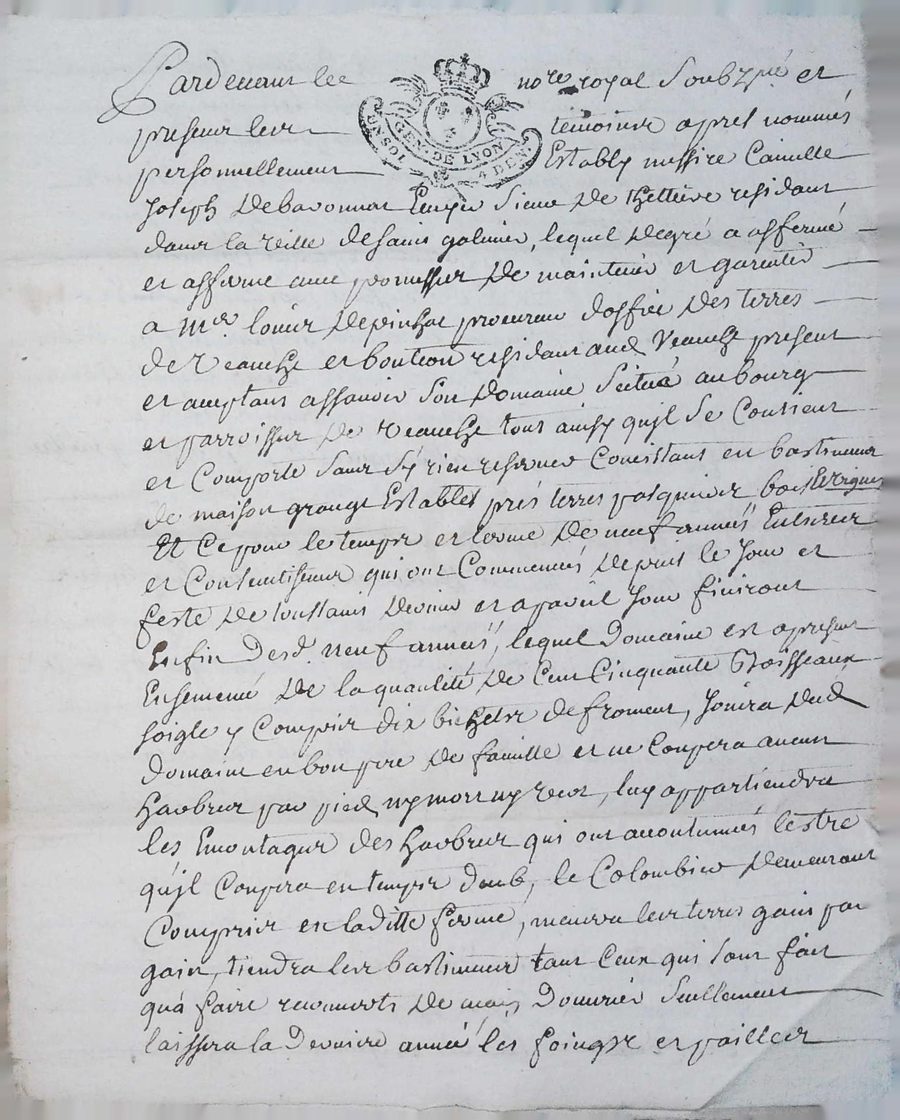 Pardevant le notre royal Soubzne et
UN SOL GEN. DE LYON 4 DEN.
presence les temoins apres nommés
personnellement Estably messire Camille
Joseph Escuyer Sieur de résidant
dans la ville de saint galmier, lequel de gré a affermé
et afferme avec promesse de maintenir et garentir
a Mre procureur d'office des terres
de Veauche et bouteon résidant aud Veauche présent
et acceptant assavoir Son Domaine Scitué au bourg
et parroisse de Veauche tout ainsy qu'jl Se Contient
et Comporte Sans Sy rien reserver Consistant en bastimens
de maison grange Estables prés terres pasquiers bois Et vignes
Et Ce pour le temps et terme de neuf années Entieres
et Consecutives qui ont Commencés depuis le Jour et
feste de toussaints dernier et a pareil Jour finiront
En fin desd. neuf années, lequel Domaine est a present
Ensemencé de la quantité de Cent Cinquante Boisseaux
soigle y Compris dix bichets de froment, Jouira dud
Domaine en bon pere de famille et ne Coupera aucun
harbres par pied ny mort ny vert, luy appartiendra
les Emontages des harbres qui ont accoutumés lestre
qu'jl Coupera en temps deub, le Colombier demeurant
Compris en laditte ferme, les terres gain par
gain, tiendra les bastimens tant Ceux qui sont fait
qu'a faire recouverts de main Douvrier Seullement
laissera la Derniere année les foings et pailles